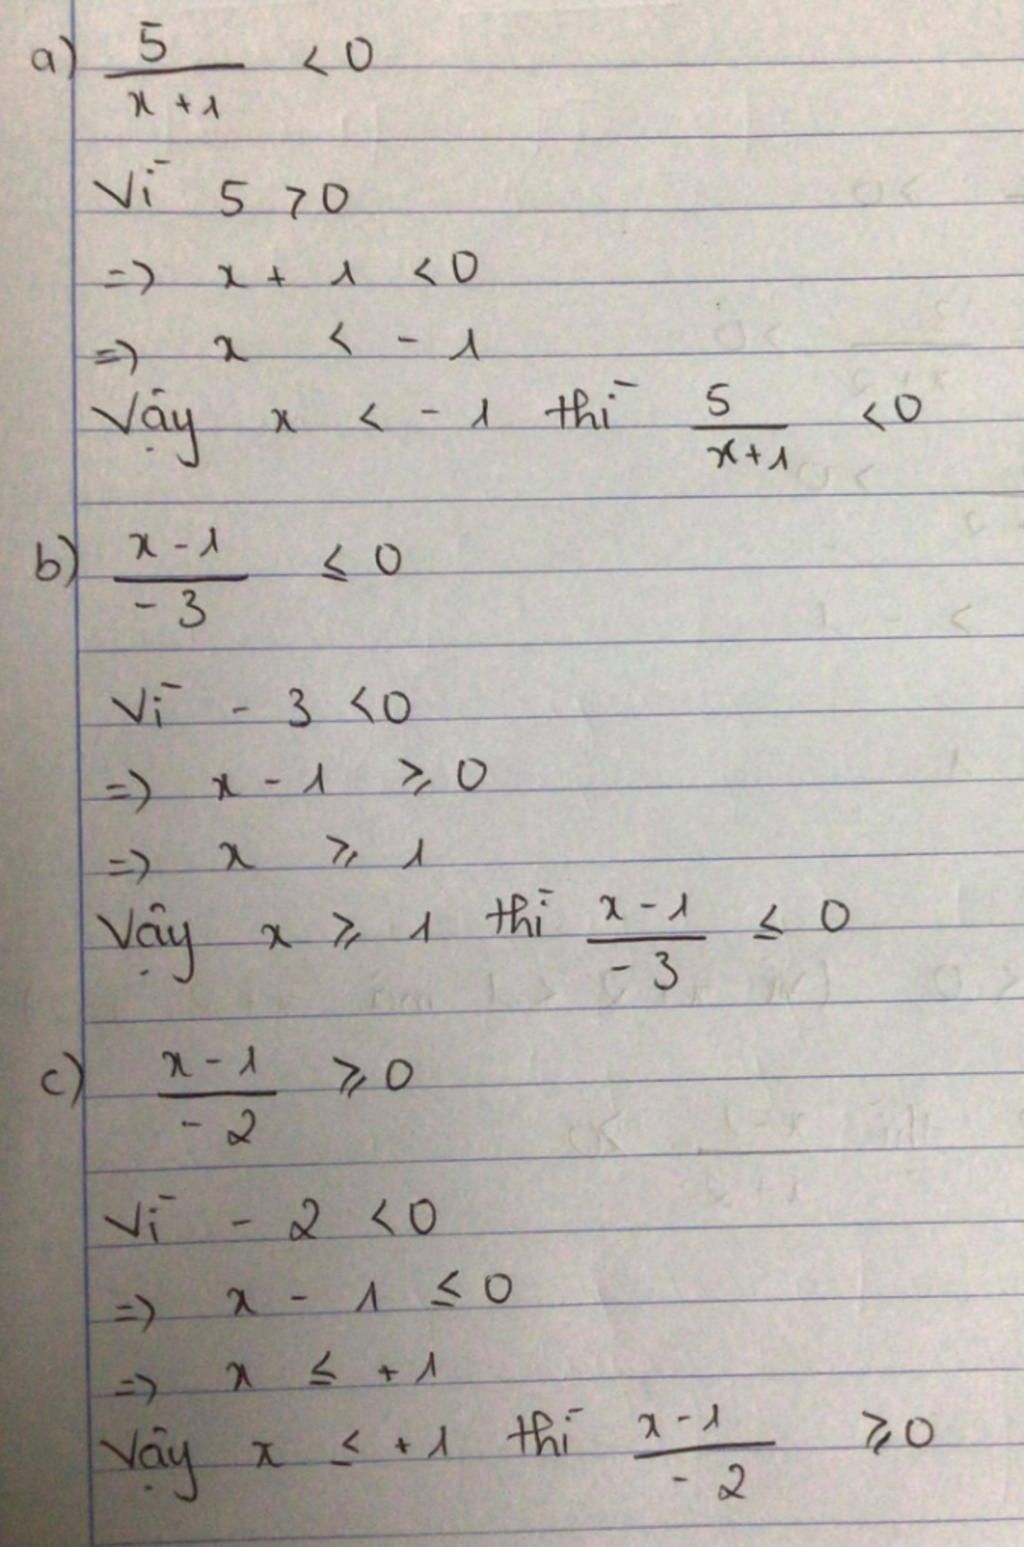 a) 5/(x+1) < 0
Vì 5 > 0
=> x + 1 < 0
=> x < - 1
Vậy x < - 1 thì 5/(x+1) < 0
b) (x-1)/(-3) ≤ 0
Vì - 3 < 0
=> x - 1 ⩾ 0
=> x ⩾ 1
Vậy x ⩾ 1 thì (x-1)/(-3) ≤ 0
c) (x-1)/(-2) ⩾ 0
Vì - 2 < 0
=> x - 1 ≤ 0
=> x ≤ +1
Vậy x ≤ +1 thì (x-1)/(-2) ⩾ 0